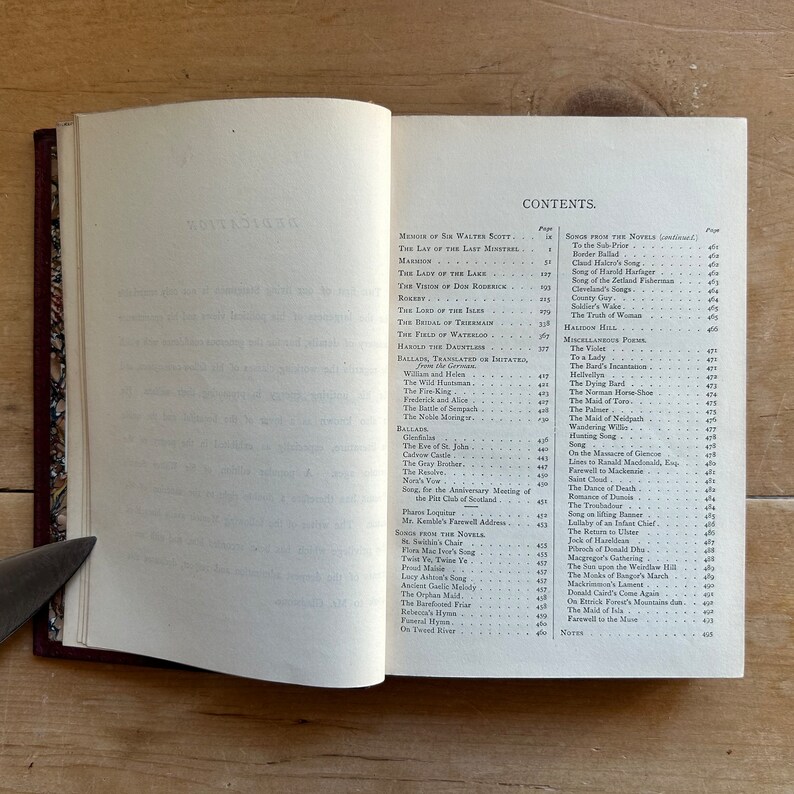 DEDICATION
CONTENTS.
Page
MEMOIR OF SIR WALTER SCOTT . . . ix
THE LAY OF THE LAST MINSTREL . . . 1
MARMION . . . 51
THE LADY OF THE LAKE . . . 127
THE VISION OF DON RODERICK . . . 193
ROKEBY . . . 215
THE LORD OF THE ISLES . . . 279
THE BRIDAL OF TRIERMAIN . . . 338
THE FIELD OF WATERLOO . . . 367
HAROLD THE DAUNTLESS . . . 377
BALLADS, TRANSLATED OR IMITATED,
from the German.
William and Helen . . . 417
The Wild Huntsman . . . 421
The Fire-King . . . 423
Frederick and Alice . . . 427
The Battle of Sempach . . . 428
The Noble Moringer . . . 430
BALLADS.
Glenfinlas . . . 436
The Eve of St. John . . . 440
Cadyow Castle . . . 443
The Gray Brother . . . 447
The Resolve . . . 450
Nora's Vow . . . 450
Song, for the Anniversary Meeting of
the Pitt Club of Scotland . . . 451
Pharos Loquitur . . . 452
Mr. Kemble's Farewell Address . . . 453
SONGS FROM THE NOVELS.
St. Swithin's Chair . . . 455
Flora Mac Ivor's Song . . . 455
Twist Ye, Twine Ye . . . 457
Proud Maisie . . . 457
Lucy Ashton's Song . . . 457
Ancient Gaelic Melody . . . 457
The Orphan Maid . . . 458
The Barefooted Friar . . . 458
Rebecca's Hymn . . . 459
Funeral Hymn . . . 460
On Tweed River . . . 460
Page
SONGS FROM THE NOVELS (continued.)
To the Sub-Prior . . . 461
Border Ballad . . . 462
Claud Halcro's Song . . . 462
Song of Harold Harfager . . . 462
Song of the Zetland Fisherman . . . 463
Cleveland's Songs . . . 464
County Guy . . . 464
Soldier's Wake . . . 465
The Truth of Woman . . . 465
HALIDON HILL . . . 466
MISCELLANEOUS POEMS.
The Violet . . . 471
To a Lady . . . 471
The Bard's Incantation . . . 471
Hellvellyn . . . 472
The Dying Bard . . . 473
The Norman Horse-Shoe . . . 474
The Maid of Toro . . . 475
The Palmer . . . 475
The Maid of Neidpath . . . 476
Wandering Willie . . . 477
Hunting Song . . . 478
Song . . . 478
On the Massacre of Glencoe . . . 478
Lines to Ranald Macdonald, Esq. . . . 480
Farewell to Mackenzie . . . 481
Saint Cloud . . . 481
The Dance of Death . . . 482
Romance of Dunois . . . 484
The Troubadour . . . 484
Song on lifting Banner . . . 485
Lullaby of an Infant Chief . . . 486
The Return to Ulster . . . 486
Jock of Hazeldean . . . 487
Pibroch of Donald Dhu . . . 488
Macgregor's Gathering . . . 488
The Sun upon the Weirdlaw Hill . . . 489
The Monks of Bangor's March . . . 489
Mackrimmon's Lament . . . 490
Donald Caird's Come Again . . . 491
On Ettrick Forest's Mountains dun . . . 492
The Maid of Isla . . . 492
Farewell to the Muse . . . 493
NOTES . . . 495